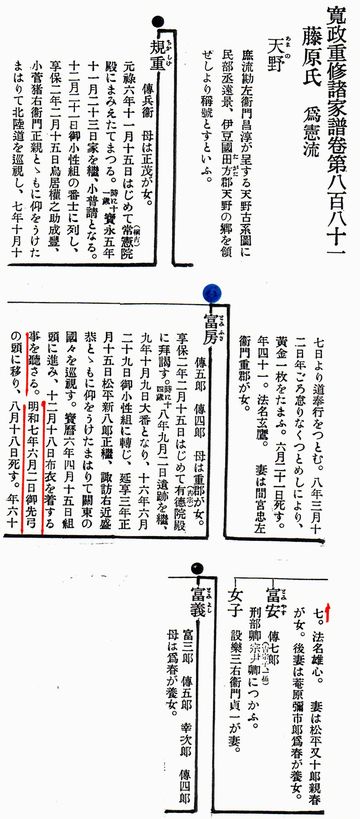 寛政重修諸家譜卷第八百八十一
藤原氏　爲憲流
天野
あまの
庶流勘左衞門昌淳が呈する天野古系圖に
民部丞遠景、伊豆國田方郡天野の郷を領
たがた
せしより稱號とすといふ。
規重
傳兵衞　母は正茂が女。
元祿六年十一月十五日はじめて常憲院
殿にまみえたてまつる。時に十一歳 寶永五年
十一月二十三日家を繼、小普請となる。
十二月二十一日御小性組の番士に列し、
享保二年二月十五日鳥居權之助成豐、
小菅猪右衞門正親とゝもに仰をうけた
まはりて北陸道を巡視し、七年十月十
七日より道奉行をつとむ。八年三月十
二日年ごろ怠りなくつとめしにより、
黃金一枚をたまふ。六月二十一日死す。
年四十一。法名玄鷹。　妻は間宮忠左
衞門重郡が女。
富房
傳五郎　傳四郎　母は重郡が女。
享保二年二月十五日はじめて有德院殿
に拜謁す。時に十四歳 八年九月二日遺跡を繼、
九年十月九日大番となり、十六年六月
二十九日御小性組に轉じ、延享三年正
月十五日松平新八郎正繼、諏訪右近盛
恭とゝもに仰をうけたまはりて關東の
國々を巡視す。寶曆六年四月十五日組
頭に進み、十二月十八日布衣を着する
事を聽さる。明和七年六月二日御先弓
の頭に移り、八月十八日死す。年六十
七。法名雄心。　妻は松平又十郎親春
が女。後妻は菴原彌市郎爲春が養女。
富安　傳七郎
刑部卿宗尹卿につかふ。
女子　設樂三右衞門貞一が妻。
富義
富三郎　傳五郎　幸次郎　傳四郎
母は爲春が養女。